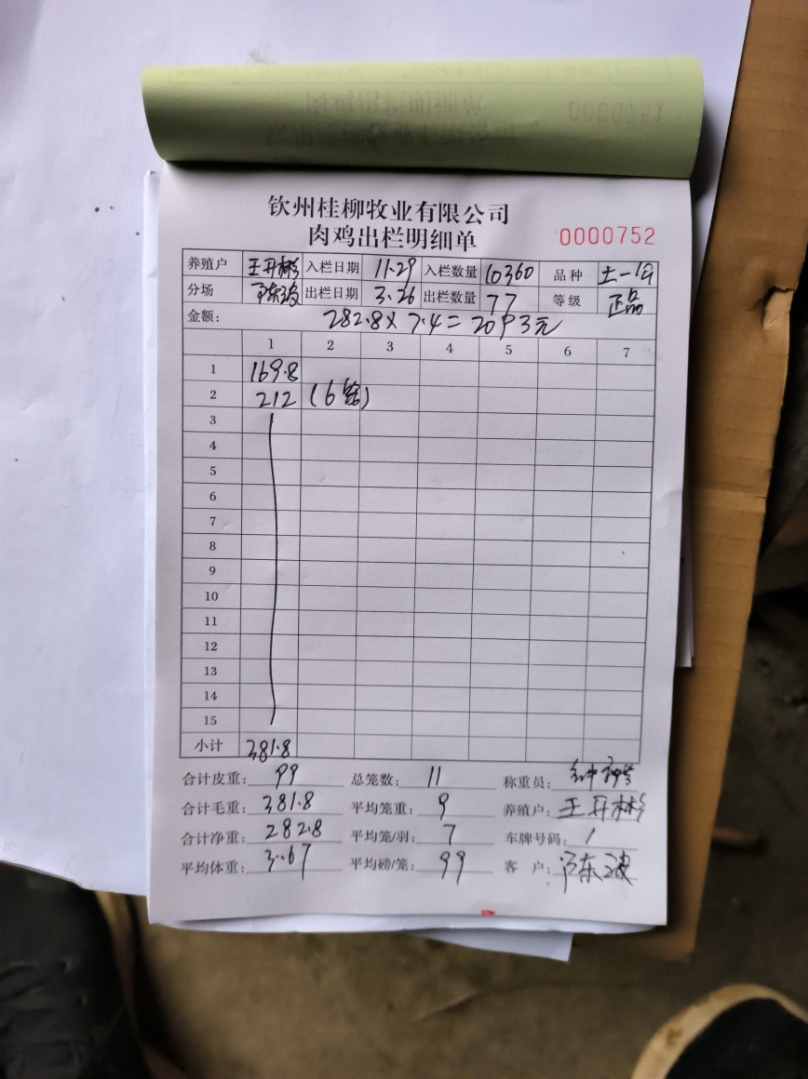 钦州桂柳牧业有限公司
肉鸡出栏明细单 0000752
养殖户 王丹彬 入栏日期 11.29 入栏数量 10360 品种 土一
分场 出栏日期 3.26 出栏数量 77 等级 正品
金额: 282.8×7.4=2093元
1 2 3 4 5 6 7
1 169.8
2 212 (6笼)
3
4
5
6
7
8
9
10
11
12
13
14
15
小计 381.8
合计皮重: 99 总笼数: 11 称重员:
合计毛重: 381.8 平均笼重: 9 养殖户: 王丹彬
合计净重: 282.8 平均笼/羽: 7 车牌号码: /
平均体重: 3.67 平均磅/笼: 99 客户: